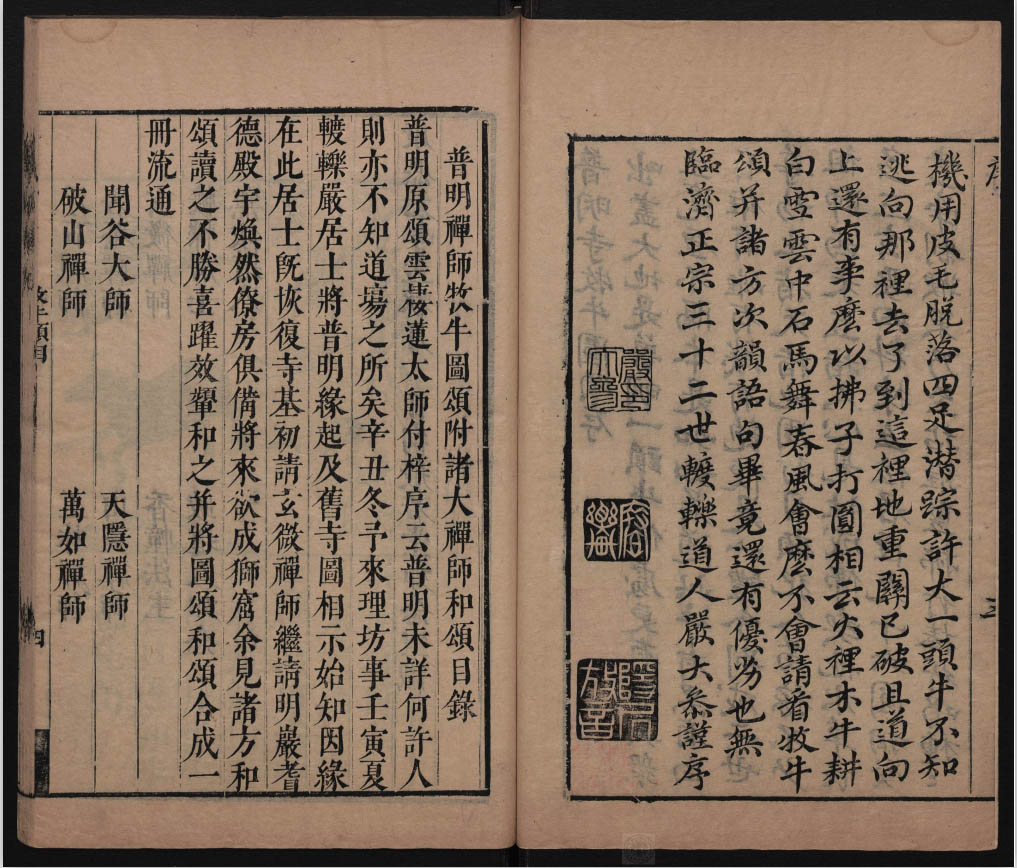 機用皮毛脫落四足潜踪許大一頭牛不知
逃向那裡去了到這裡地重關已破且道向
上還有事麼以拂子打圓相云火裡木牛耕
白雪雲中石馬舞春風會麼不會請看牧牛
頌并諸方次韻語句畢竟還有優劣也無
臨濟正宗三十二世轆轢道人嚴大叅謹序
普明禪師牧牛圖頌附諸大禪師和頌目錄
普明原頌雲棲蓮太師付梓序云普明未詳何許人
則亦不知道場之所矣辛丑冬予來理坊事壬寅夏
轆轢嚴居士將普明緣起及舊寺圖相示始知因緣
在此居士旣恢復寺基初請玄微禪師繼請明巖耆
德殿宇煥然僚房俱備將來欲成獅窟余見諸方和
頌讀之不勝喜躍效顰和之并將圖頌和頌合成一
冊流通
聞谷大師 天隱禪師
破山禪師 萬如禪師
四